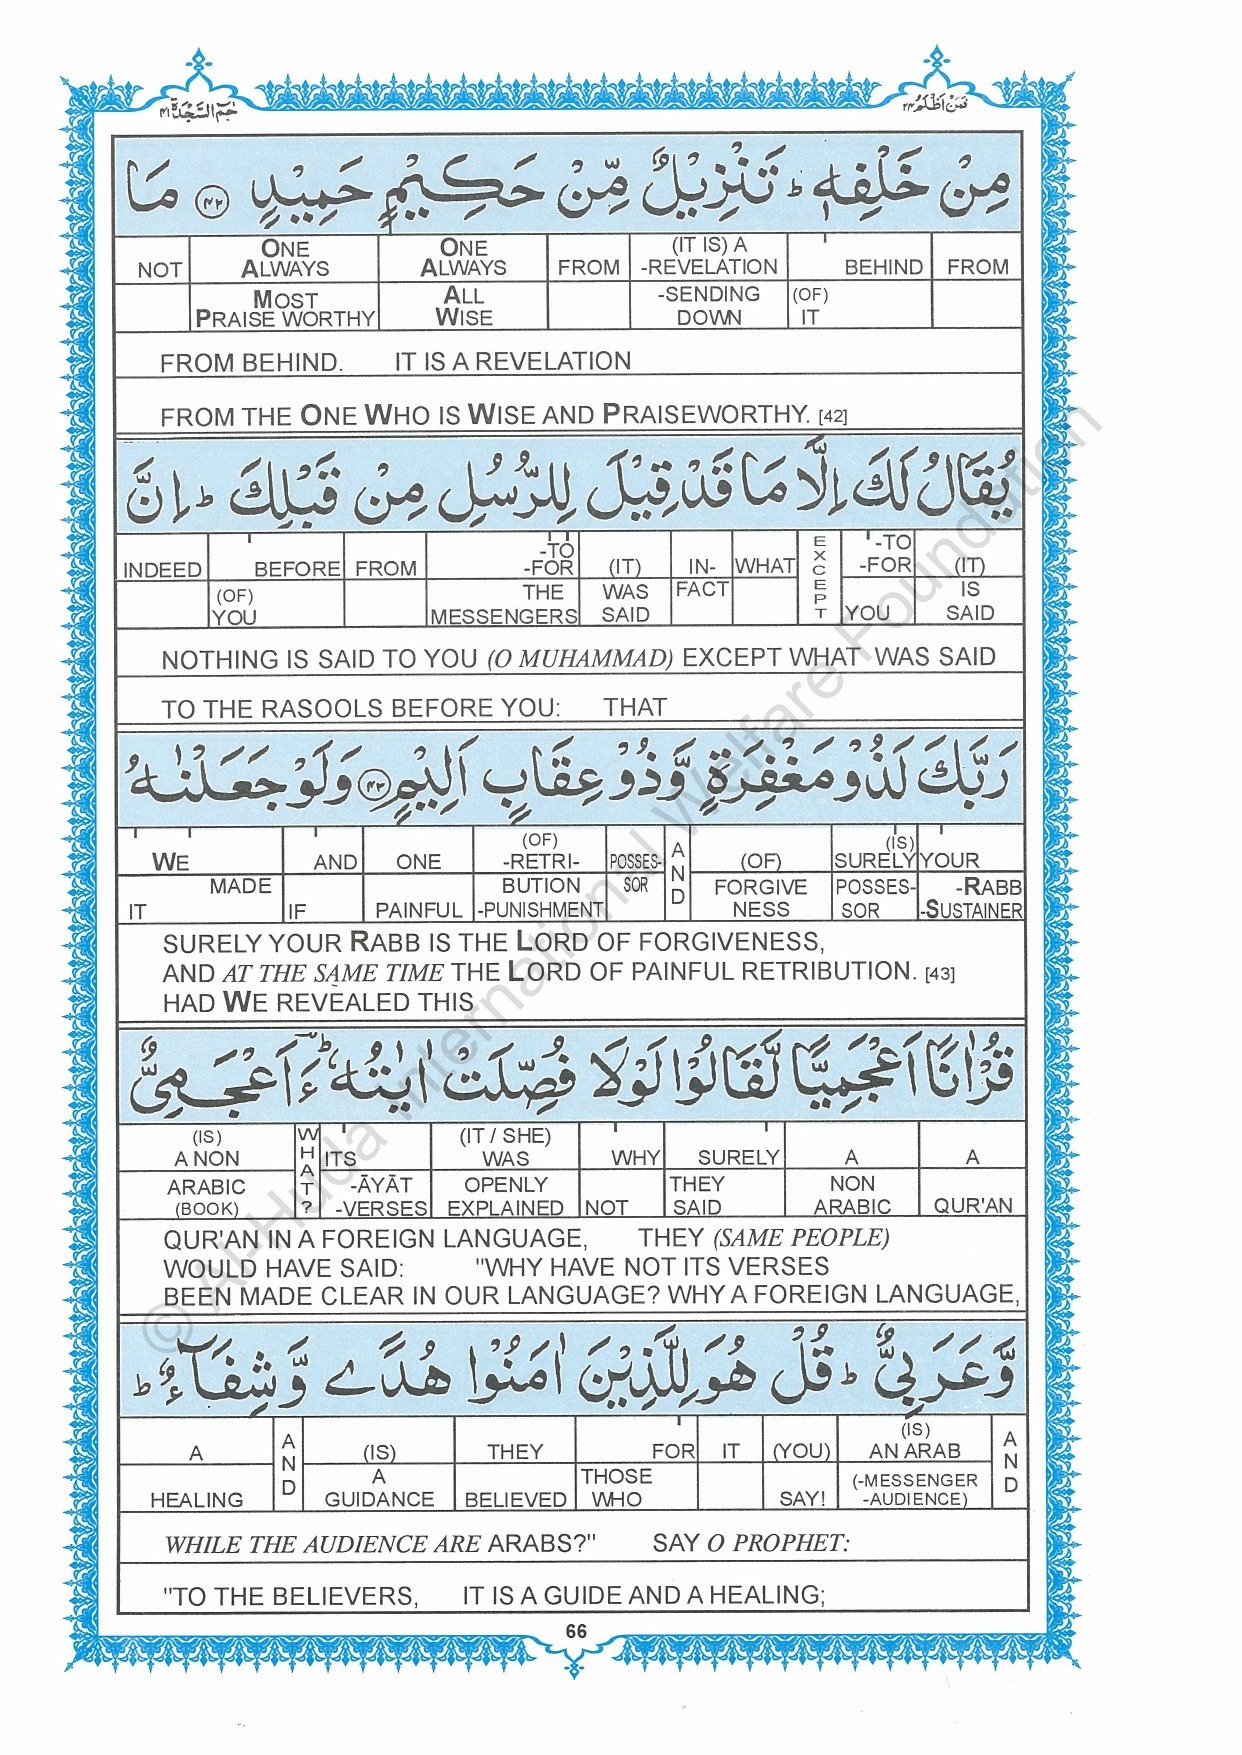 حٰمٓ السَّجْدَة ٤١
فَمَنْ اَظْلَمُ ٢٤
مِنْ خَلْفِهٖ ؕ تَنْزِيْلٌ مِّنْ حَكِيْمٍ حَمِيْدٍ ﴿۴۲﴾ مَا
NOT | ONE ALWAYS | ONE ALWAYS | FROM | (IT IS) A -REVELATION | BEHIND | FROM
MOST PRAISE WORTHY | ALL WISE | -SENDING DOWN | (OF) IT
FROM BEHIND. IT IS A REVELATION
FROM THE ONE WHO IS WISE AND PRAISEWORTHY. [42]
يُقَالُ لَكَ اِلَّا مَا قَدْ قِيْلَ لِلرُّسُلِ مِنْ قَبْلِكَ ؕ اِنَّ
INDEED | BEFORE | FROM | -TO -FOR | (IT) | IN- | WHAT | EXCEPT | -TO -FOR | (IT)
(OF) YOU | THE MESSENGERS | WAS SAID | FACT | YOU | IS SAID
NOTHING IS SAID TO YOU (O MUHAMMAD) EXCEPT WHAT WAS SAID
TO THE RASOOLS BEFORE YOU: THAT
رَبَّكَ لَذُوْ مَغْفِرَةٍ وَّذُوْ عِقَابٍ اَلِيْمٍ ﴿۴۳﴾ وَلَوْ جَعَلْنٰهُ
WE | AND | ONE | (OF) -RETRI- | POSSES- | AND | (OF) | (IS) SURELY | YOUR
IT MADE | IF | PAINFUL | BUTION -PUNISHMENT | SOR | FORGIVE NESS | POSSES- SOR | -RABB -SUSTAINER
SURELY YOUR RABB IS THE LORD OF FORGIVENESS,
AND AT THE SAME TIME THE LORD OF PAINFUL RETRIBUTION. [43]
HAD WE REVEALED THIS
قُرْاٰنًا اَعْجَمِيًّا لَّقَالُوْا لَوْلَا فُصِّلَتْ اٰيٰتُهٗ ؕ ءَاَعْجَمِيٌّ
(IS) A NON | WHAT? | ITS | (IT / SHE) WAS | WHY | SURELY | A | A
ARABIC (BOOK) | -ĀYĀT -VERSES | OPENLY EXPLAINED | NOT | THEY SAID | NON ARABIC | QUR'AN
QUR'AN IN A FOREIGN LANGUAGE, THEY (SAME PEOPLE)
WOULD HAVE SAID: "WHY HAVE NOT ITS VERSES
BEEN MADE CLEAR IN OUR LANGUAGE? WHY A FOREIGN LANGUAGE,
وَّعَرَبِيٌّ ؕ قُلْ هُوَ لِلَّذِيْنَ اٰمَنُوْا هُدًى وَّشِفَآءٌ ؕ
A | AND | (IS) | THEY | FOR | IT | (YOU) | (IS) AN ARAB | AND
HEALING | A GUIDANCE | BELIEVED | THOSE WHO | SAY! | (-MESSENGER -AUDIENCE)
WHILE THE AUDIENCE ARE ARABS?" SAY O PROPHET:
"TO THE BELIEVERS, IT IS A GUIDE AND A HEALING;
66
© Al-Huda International Welfare Foundation